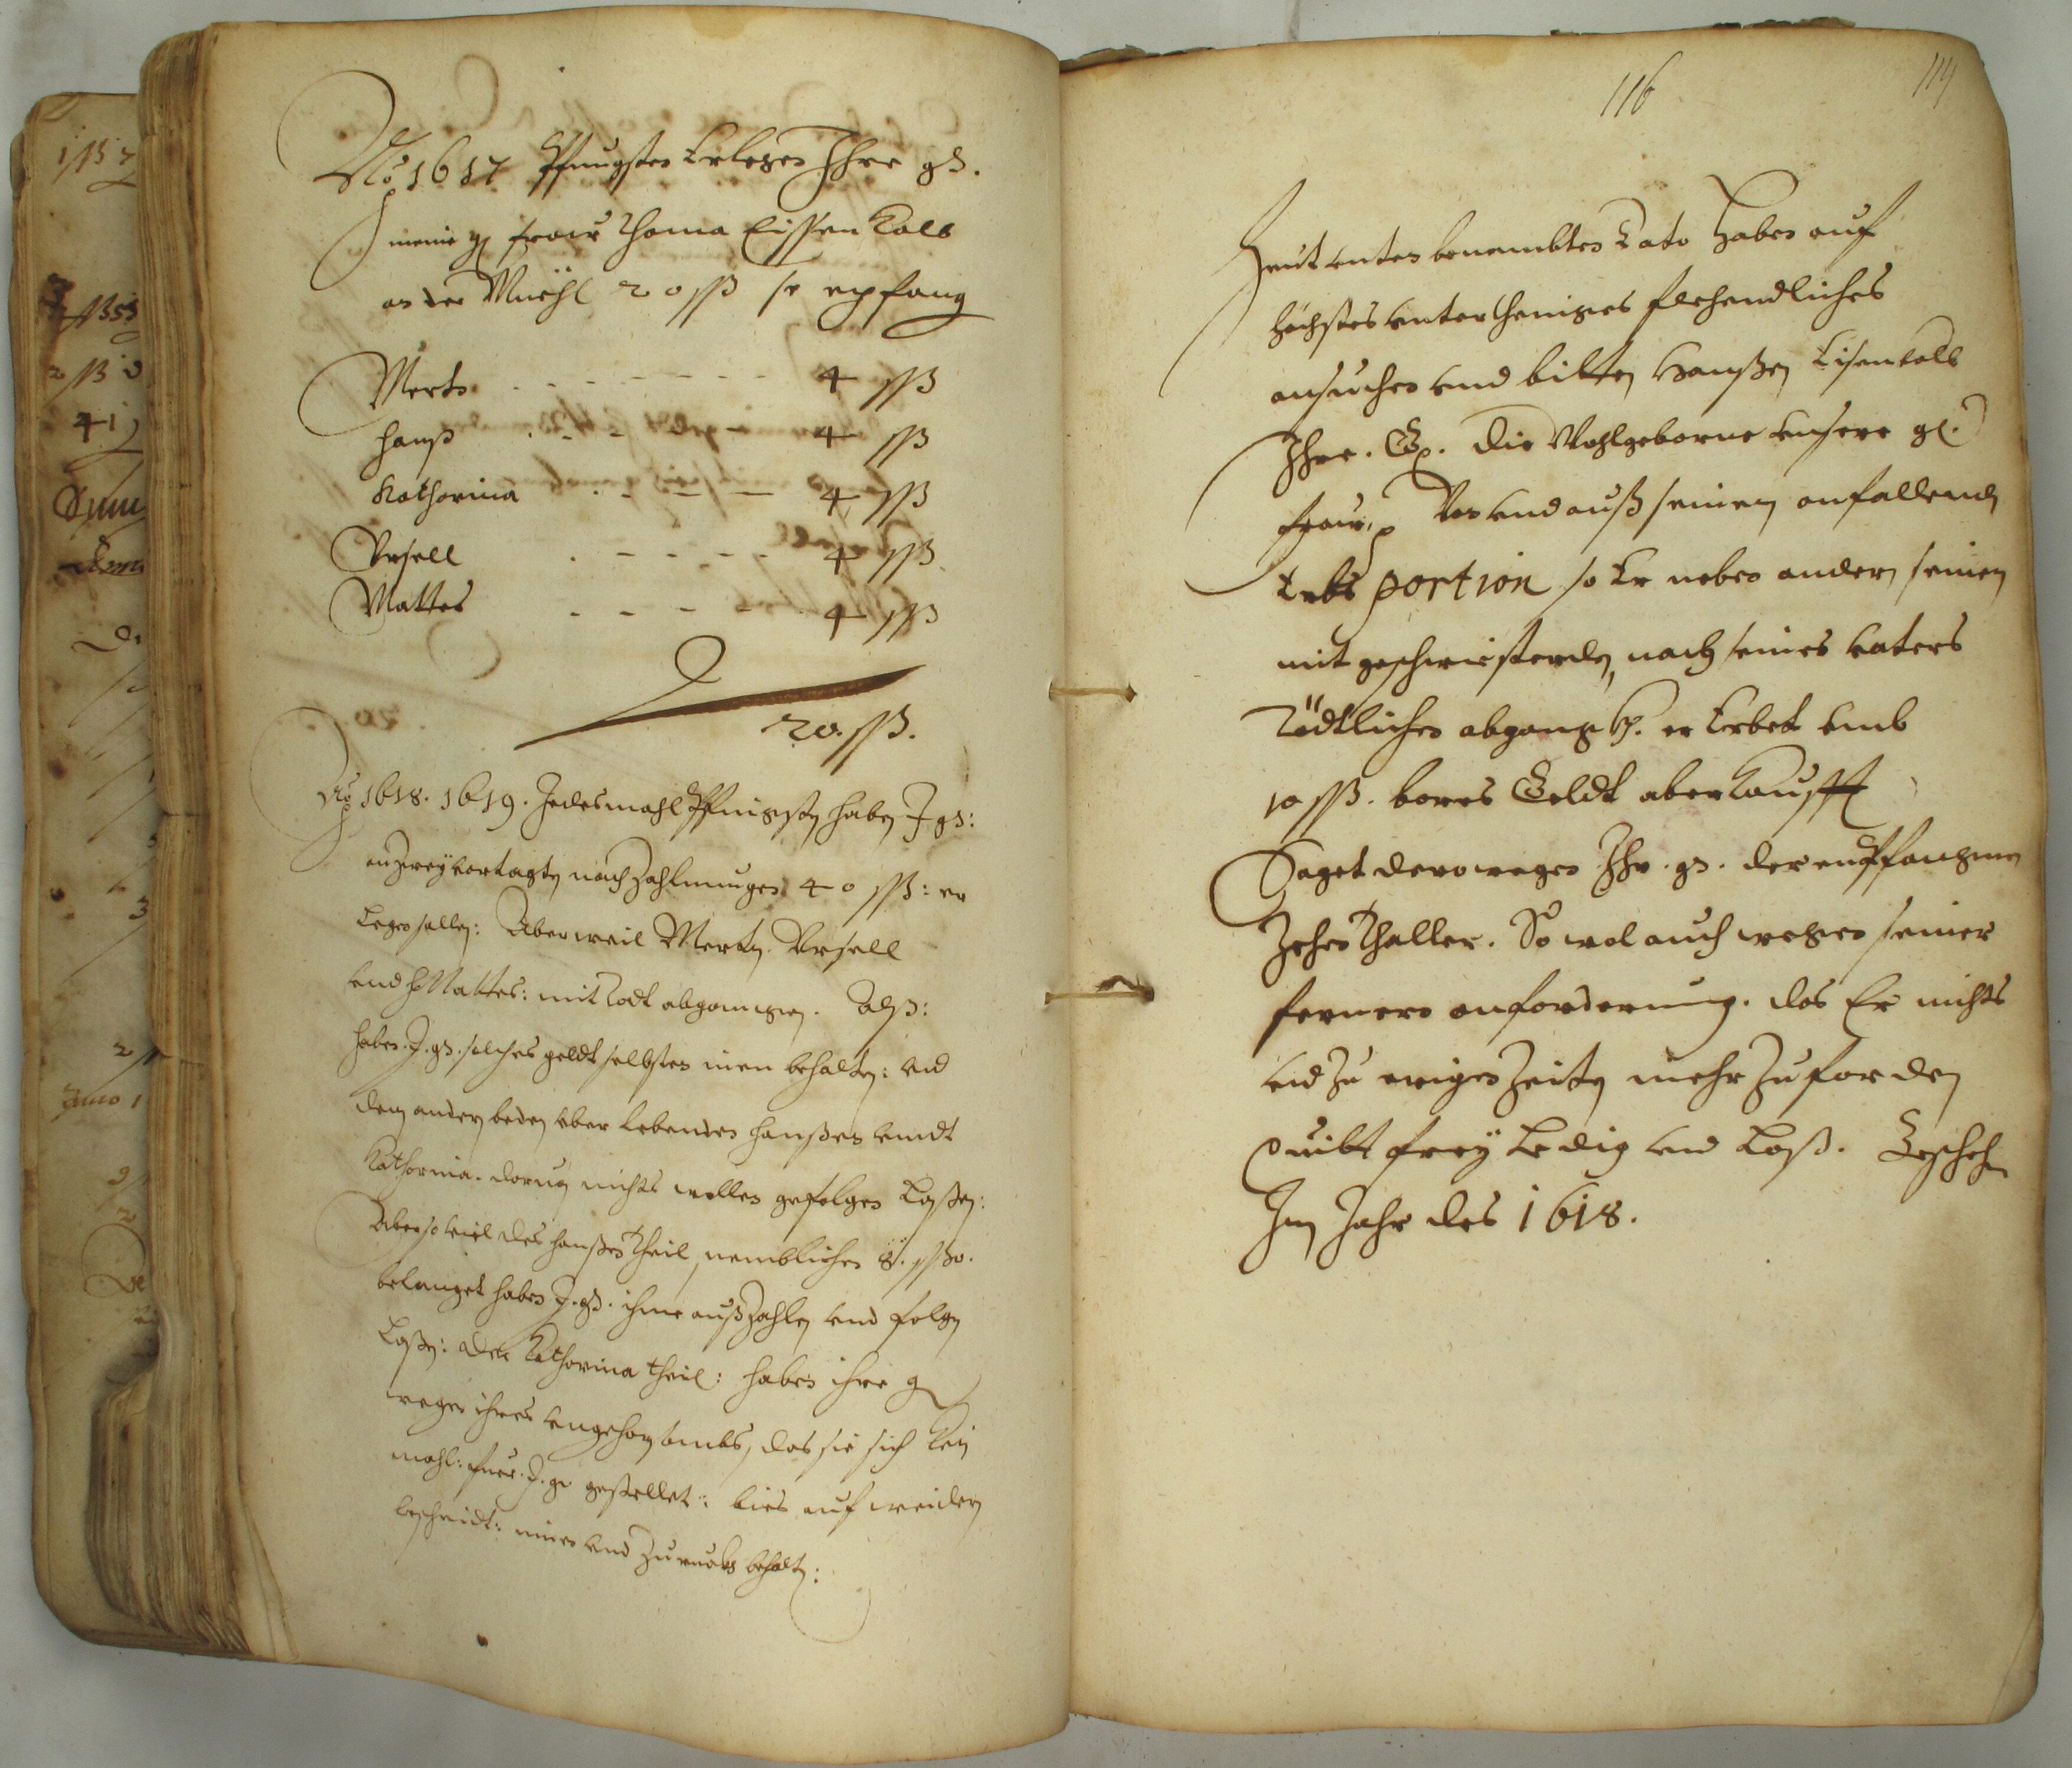 Ao 1617 Pfingsten Erlegen Ihre gd.
meine g frau Thoma Eissenkalb
an der Muëhl 20 ßß so epfang
Merten 4 ßß
Hanß 4 ßß
Katharina 4 ßß
Vrsell 4 ßß
Mattes 4 ßß
20. ßß.
Ao 1618. 1619. Jedesmahl Pfingsten haben I gd:
an zwey vortagten nach Zahlunngen 40 ßß: er
Legen sollen: Aber weil Merten Vrsell
vnd Mattes: mit Todt abgangen. Alß:
haben. I. gd. solches geldt selbsten inen behalten: vnd
den andern beden aber Lebenden Hanßen vnndt
Katharina. darun nichts wollen gefolgen Laßen:
Aber so viel des Hanßen Theil, nemblichen 8. ßß.
belanget haben I. gd. ihme außzahlen vnd folgen
Laßen: der Katharina theil: haben ihre g
wegen ihres vngehorsambs, das sie sich kein
mahl: fuer. I. gd gestellet: bies auf weidern
bescheidt: innen vnd zuruckh behalten:
116
114
Heut vnten benembten Dato Haben auf
höchstes vnterthenigen flehendliches
ansuchen vnd bitten Hanßen Eisenkalb
Ihre. G. Die Wohlgeborne vnsere gl.
Frau, Von vnd auß seinen anfallenden
Erbs portion so Er neben andern seinen
mit geschwisterden, nach seines vaters
Tödtlichen abgang er Erbet vmb
10 ßß. bares Geldt aberkaufft
Saget derowegen Ihr. gd. der entpfangenen
Zehen Thaller. So wol auch wegen seiner
fernern anforderung. das Er nichts
vnd zu ewigen Zeiten mehr zu fordern
quitt frey Ledig vnd Loß. Geschehen
Im Jahr des 1618.